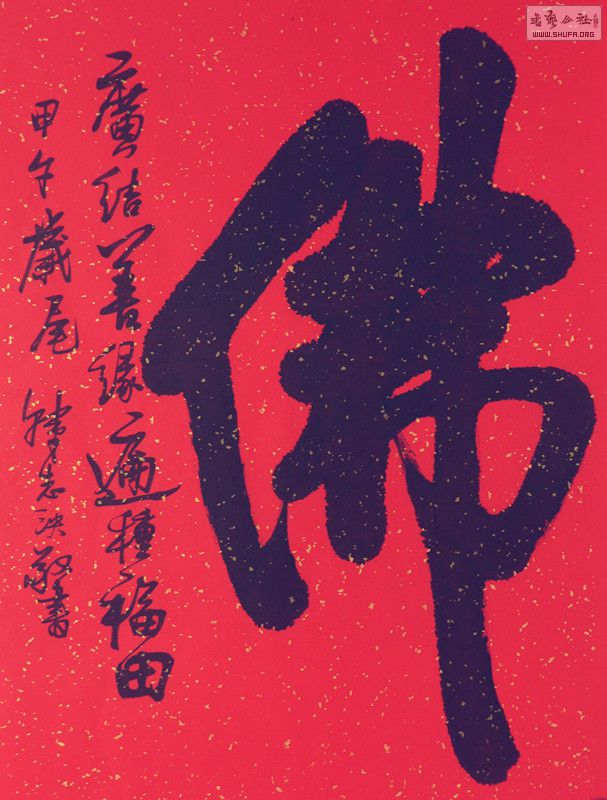 佛
廣結善緣遍種福田
甲午歲尾 韓志泱敬書
書藝公社
WWW.SHUFA.ORG